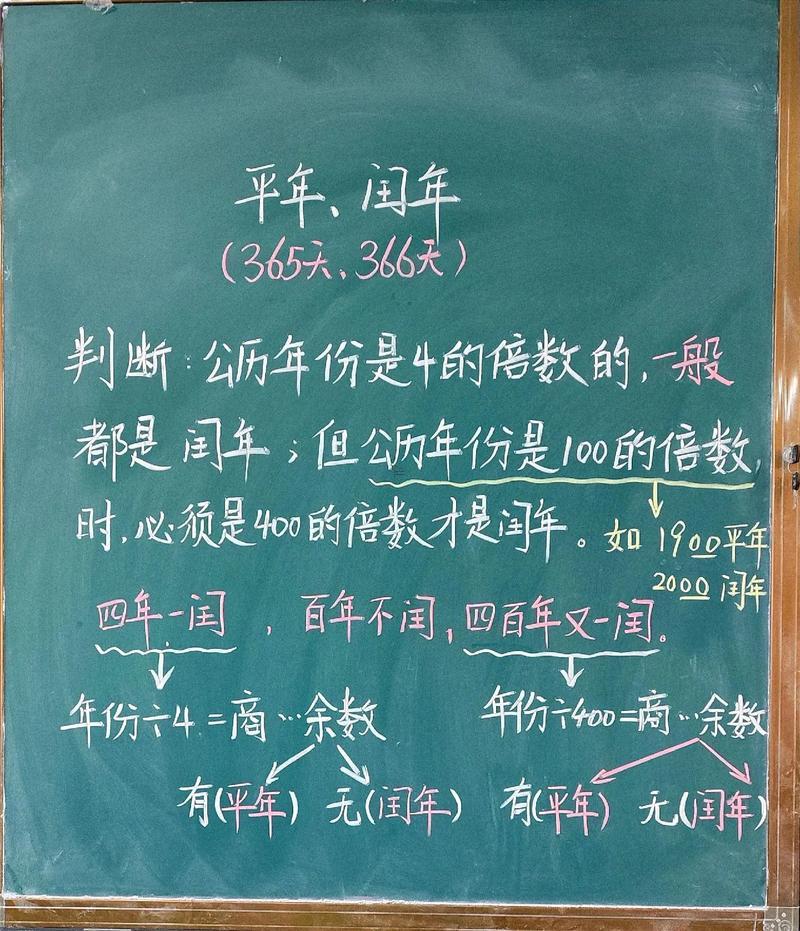 平年、闰年
(365天、366天)
判断:公历年份是4的倍数的,一般
都是闰年;但公历年份是100的倍数,
时,必须是400的倍数才是闰年。如 1900平年
2000 闰年
四年一闰,百年不闰,四百年又一闰。
年份÷4=商…余数 年份÷400=商…余数
有(平年) 无(闰年) 有(平年) 无(闰年)